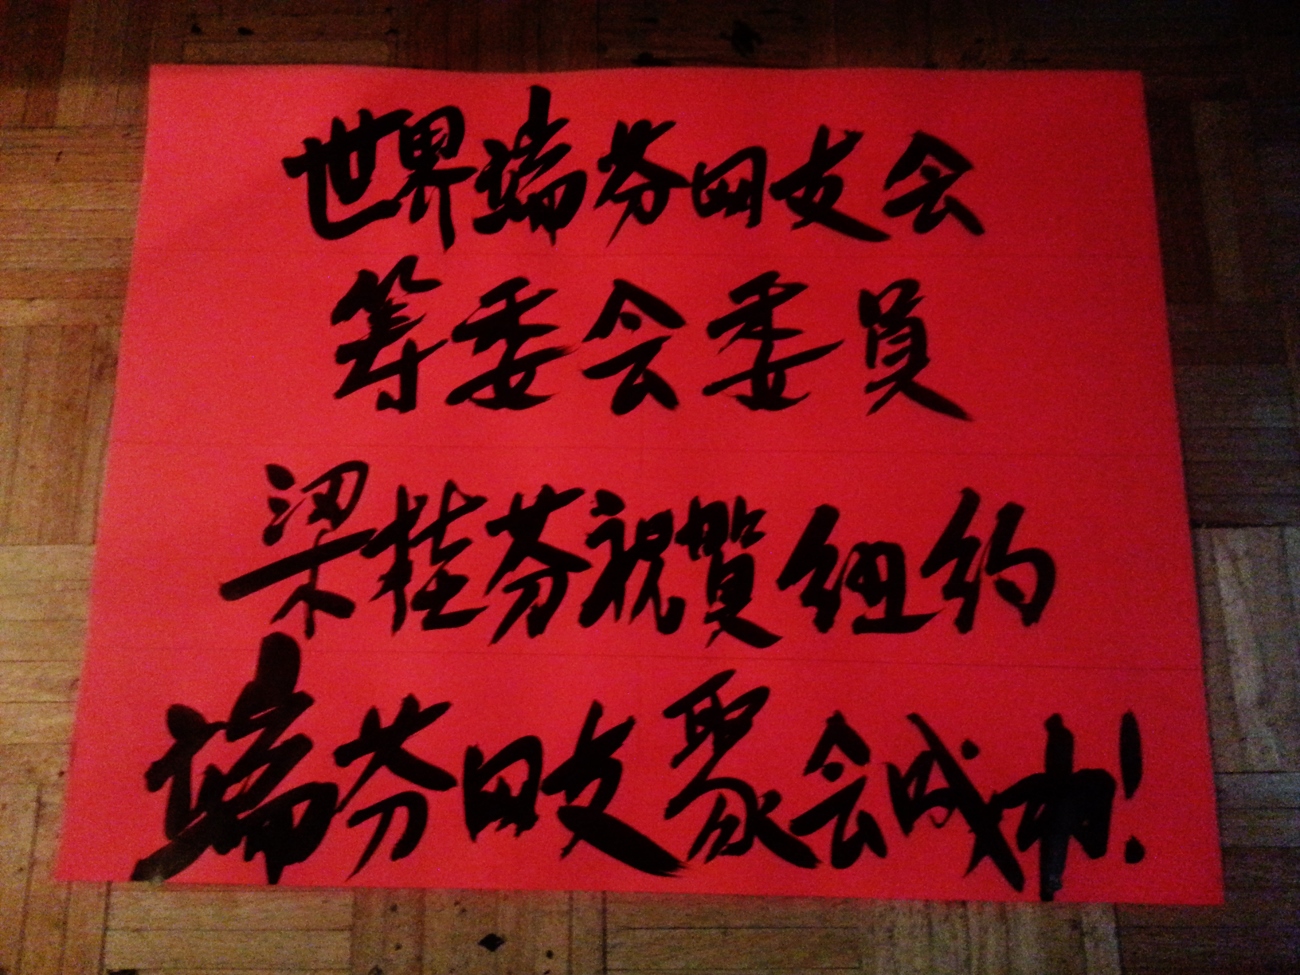 世界端芬网友会
筹委会委員
梁桂芬祝賀纽约
端芬网友聚会成功!